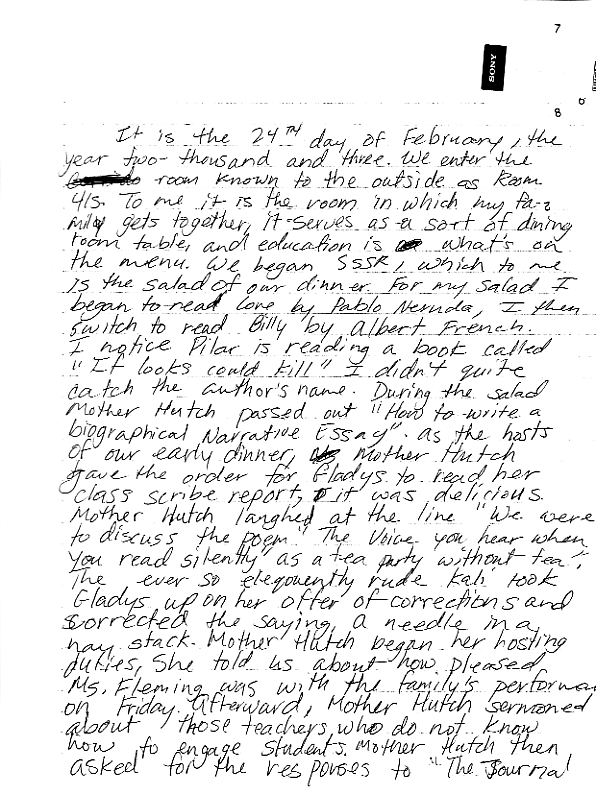 7
SONY
8
It is the 24TH day of February, the
year two-thousand and three. We enter the
room known to the outside as Room
415. To me it is the room in which my fa-
mily gets together, it serves as a sort of dining
room table, and education is what's on
the menu. We began SSSR, which to me
is the salad of our dinner. For my salad I
began to read Love by Pablo Neruda, I then
switch to read Billy by Albert French.
I notice Pilar is reading a book called
"If looks could kill" I didn't quite
catch the author's name. During the salad
Mother Hutch passed out "How to write a
biographical Narrative Essay". As the hosts
of our early dinner, Mother Hutch
gave the order for Gladys to read her
class scribe report, it was delicious.
Mother Hutch laughed at the line "We were
to discuss the poem "The Voice you hear when
you read silently" as a tea party without tea".
The ever so eleqouently rude Kali took
Gladys up on her offer of corrections and
corrected the saying, a needle in a
hay stack. Mother Hutch began her hosting
duties, She told us about how pleased
Ms. Fleming was with the family's performan
on Friday. Afterward, Mother Hutch sermoned
about those teachers who do not know
how to engage students. Mother Hutch then
asked for the responses to "The Journal